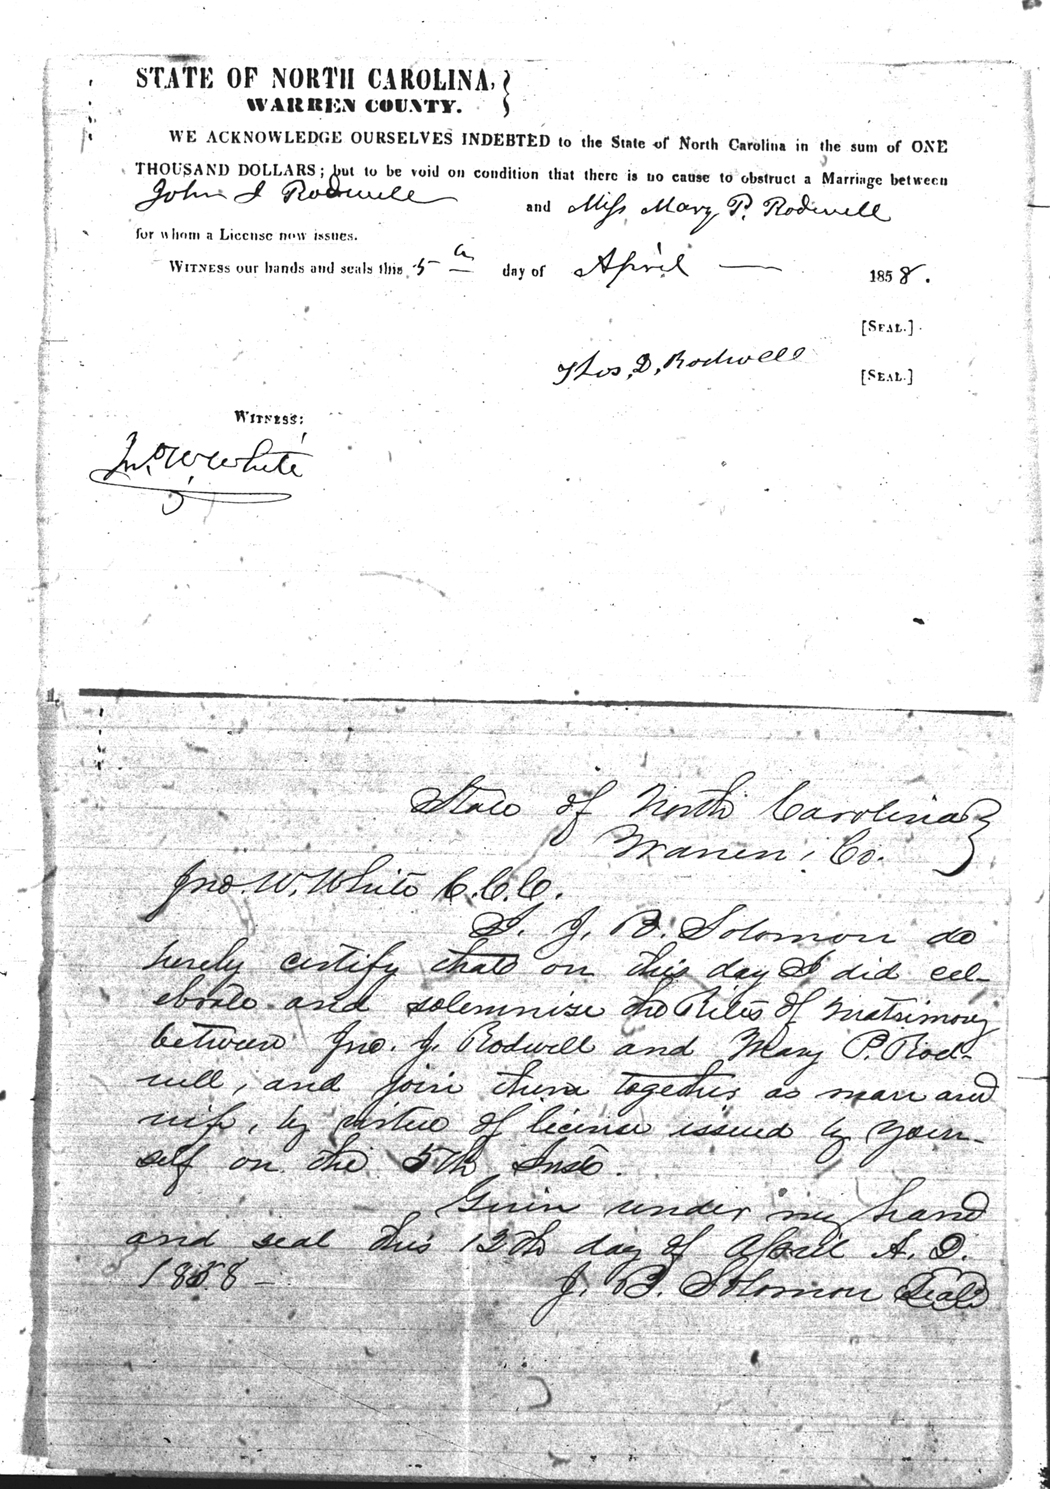 STATE OF NORTH CAROLINA, }
WARREN COUNTY.
WE ACKNOWLEDGE OURSELVES INDEBTED to the State of North Carolina in the sum of ONE
THOUSAND DOLLARS; but to be void on condition that there is no cause to obstruct a Marriage between
John J Rodwell and Miss Mary P. Rodwell
for whom a License now issues.
WITNESS our hands and seals this 5th day of April 1858.
[SEAL.]
Thos. D. Rodwell [SEAL.]
WITNESS:
Jno. W. White
State of North Carolina }
Warren Co.
Jno. W. White C.C.C.
I. J. B. Solomon do
herely certify that on this day I did cel-
ebrate and solemnize the Rites of Matrimony
between Jno. J. Rodwell and Mary P. Rod-
well, and join them together as man and
wife, by virtue of license issued by your-
self on the 5th Inst.
Given under my hand
and seal this 12th day of April A. D.
1858 - J. B. Solomon Seal